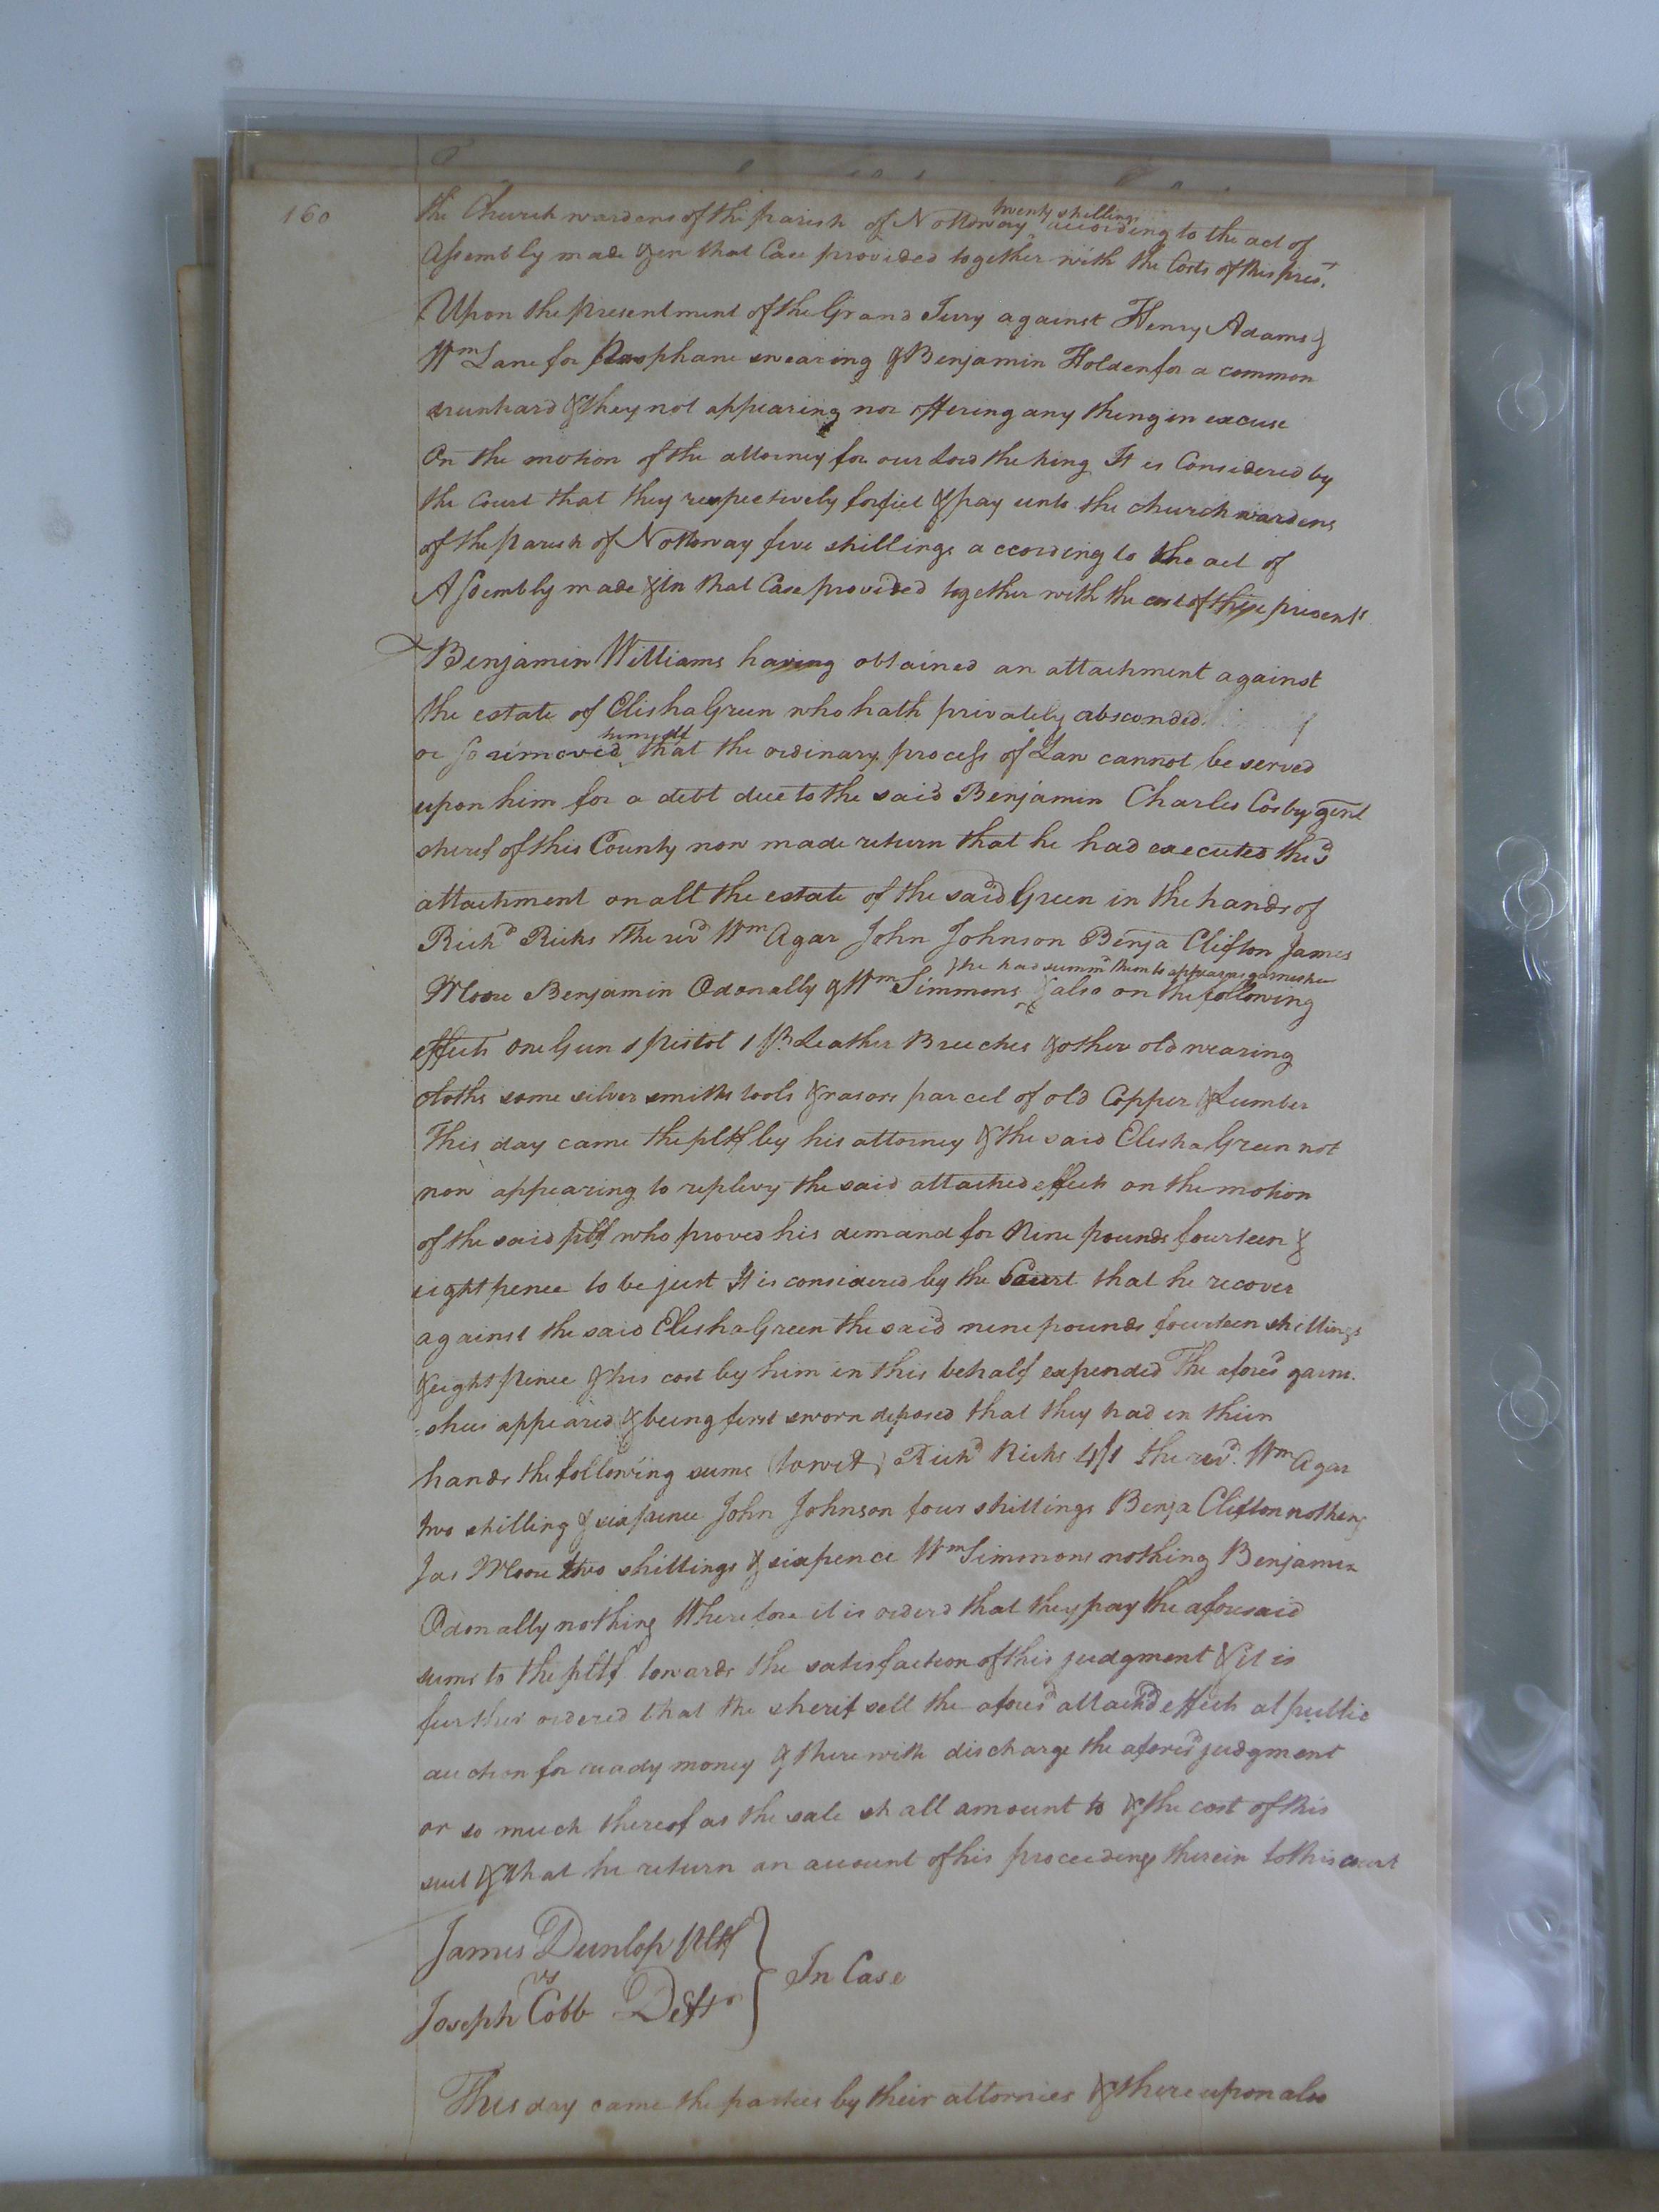 160
the Church wardens of the parish of Nottoway twenty shillings according to the act of
Assembly made & in that Case provided together with the Costs of this pres.t
Upon the presentment of the Grand Jury against Henry Adams &
Wm Lane for prophane swearing & Benjamin Holden for a common
drunkard & they not appearing nor offering any thing in excuse
On the motion of the attorney for our Lord the King It is Considered by
the Court that they respectively forfiet & pay unto the church wardens
of the Parish of Nottoway five shillings according to the act of
Assembly made & in that Case provided together with the cost of these presents
Benjamin Williams having obtained an attachment against
the estate of Elisha Green who hath privately absconded
or so removed himself that the ordinary process of Law cannot be served
upon him for a debt due to the said Benjamin Charles Cosby gent
sherif of this County now made return that he had executed the sd
attachment on all the estate of the said Green in the hands of
Richd Ricks The revd Wm Agar John Johnson Benja Clifton James
Moore Benjamin Odonally & Wm Simmons & he had summd them to appear as garnishee & also on the following
effects One Gun 1 pistol 1 Pr Leather Breeches & other old wearing
cloths some silver smiths tools & rasors parcel of old Copper & Lumber
This day came the pltf by his attorney & the said Elisha Green not
now appearing to replevy the said attached effects on the motion
of the said pltf who proved his demand for Nine pounds fourteen &
eight pence to be just It is considered by the Court that he recover
against the said Elisha Green the said nine pounds fourteen shillings
& eight pence & his cost by him in this behalf expended The aforesd garni-
-shees appeared & being first sworn deposed that they had in their
hands the following sums (towit) Richd Ricks 4/1 the revd. Wm Agar
two shilling & sixpence John Johnson four shillings Benja Clifton nothing
Jas Moore two shillings & sixpence Wm Simmons nothing Benjamin
Odonally nothing Wherefore it is orderd that they pay the aforesaid
sums to the pltf towards the satisfaction of this judgment & it is
further ordered that the sherif sell the aforesd attachd effects at public
auction for ready money & therewith discharge the aforesd judgment
or so much thereof as the sale shall amount to & the cost of this
suit & that he return an account of his proceedings therein to this court
James Dunlop Pltf
vs
In Case
Joseph Cobb Deft
This day came the parties by their attornies & thereupon also